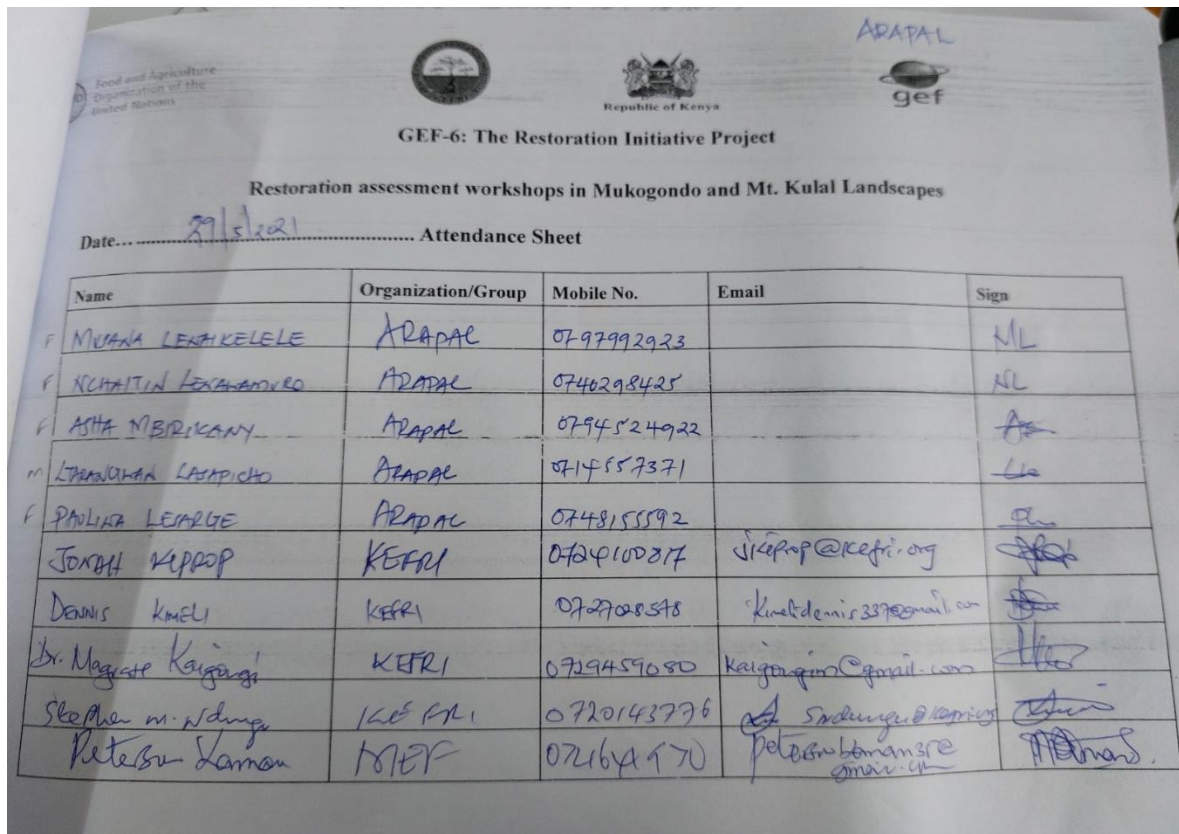 ARAPAL
Food and Agriculture
Organization of the
United Nations
Republic of Kenya
gef
GEF-6: The Restoration Initiative Project
Restoration assessment workshops in Mukogondo and Mt. Kulal Landscapes
Date... 29/5/2021 Attendance Sheet
Name Organization/Group Mobile No. Email Sign
F MUSANA LENAIKELELE ARAPAL 0797992923 ML
F NCHAITIN ARAPAL 0740298425 NL
F ASHA MBIRIKANY ARAPAL 0794524922
M ARAPAL 0714557371
F PAULINA LESARGE ARAPAL 0748155592
JONAH KIPROP KEFRI 0724100817 jkiprop@kefri.org
DENNIS KIMELI KEFRI 0727028578 Kimelidennis337@gmail.com
Dr. Magrate Kaigongi KEFRI 0729459080 kaigongim@gmail.com
Stephen M. Ndungu KEFRI 0720143776
Peterson Kamau MEF